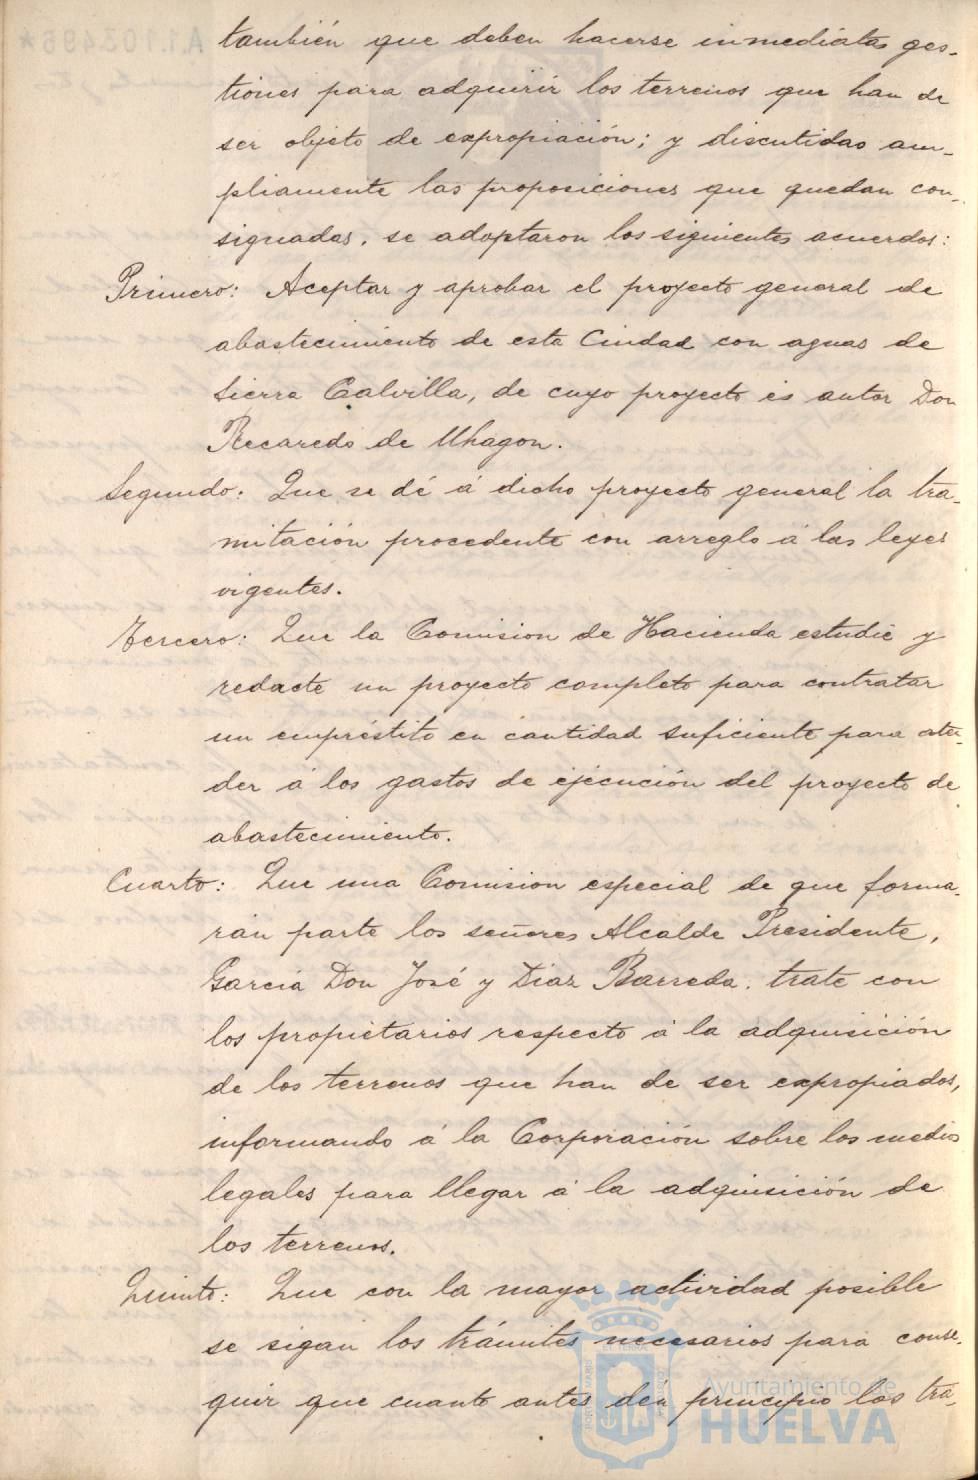 también que deben hacerse inmediatas ges-
tiones para adquirir los terrenos que han de
ser objeto de expropiación; y discutidas am-
pliamente las proposiciones que quedan con-
signadas, se adoptaron los siguientes acuerdos:
Primero: Aceptar y aprobar el proyecto general de
abastecimiento de esta Ciudad con aguas de
Sierra Calvilla, de cuyo proyecto es autor Don
Recaredo de Uhagon.
Segundo: Que se dé á dicho proyecto general la tra-
mitación procedente con arreglo á las leyes
vigentes.
Tercero: Que la Comision de Hacienda estudie y
redacte un proyecto completo para contratar
un empréstito en cantidad suficiente para aten-
der á los gastos de ejecución del proyecto de
abastecimiento.
Cuarto: Que una Comision especial de que forma-
rán parte los señores Alcalde Presidente,
García Don José y Diaz Barreda, trate con
los propietarios respecto á la adquisición
de los terrenos que han de ser expropiados,
informando á la Corporación sobre los medios
legales para llegar á la adquisición de
los terrenos.
Quinto: Que con la mayor actividad posible
se sigan los trámites necesarios para conse-
guir que cuanto antes den principio los tra-
Ayuntamiento de
HUELVA